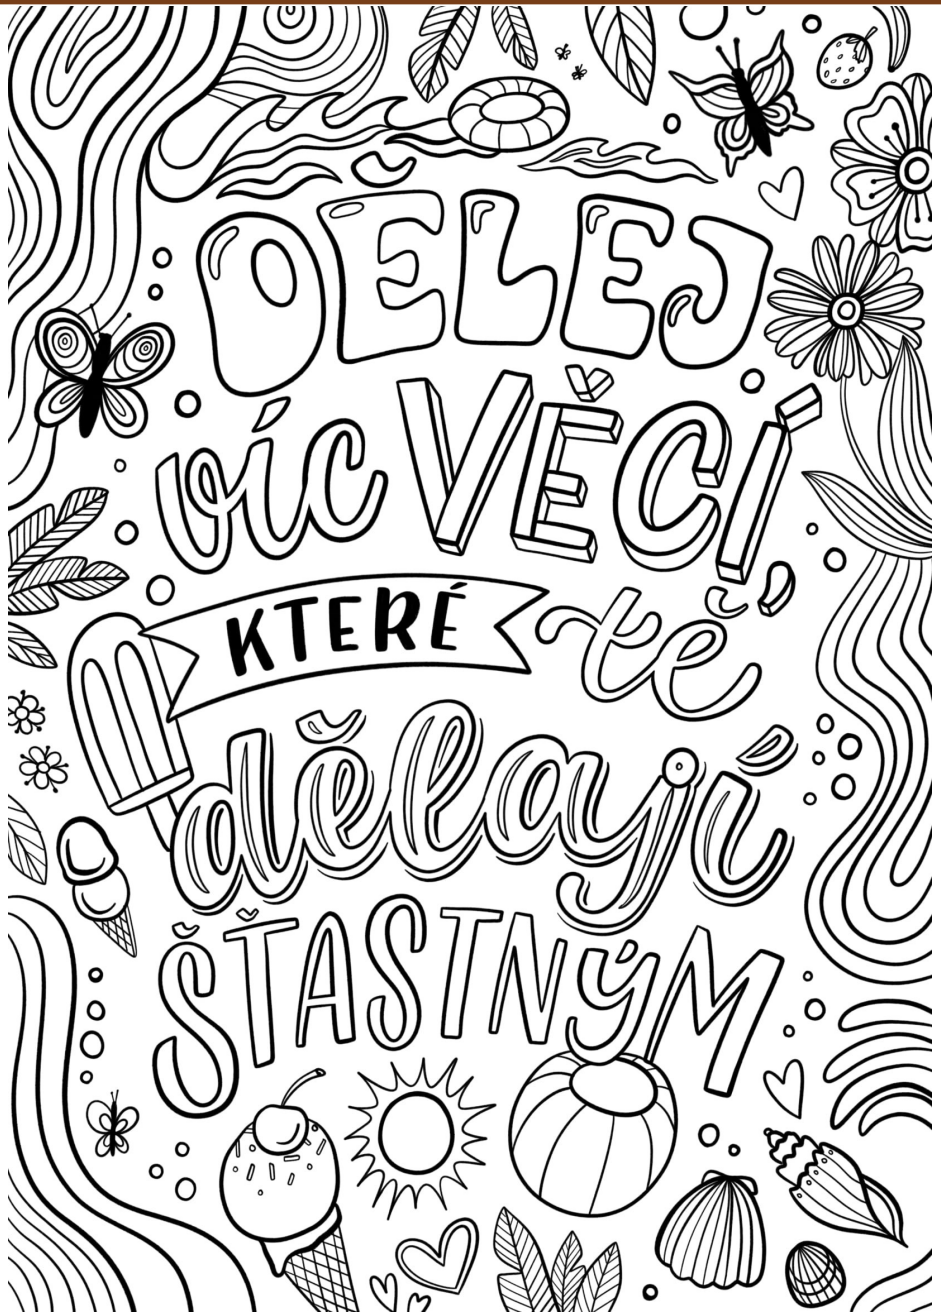 DĚLEJ
víc VĚCÍ,
KTERÉ tě
dělají
ŠŤASTNÝM